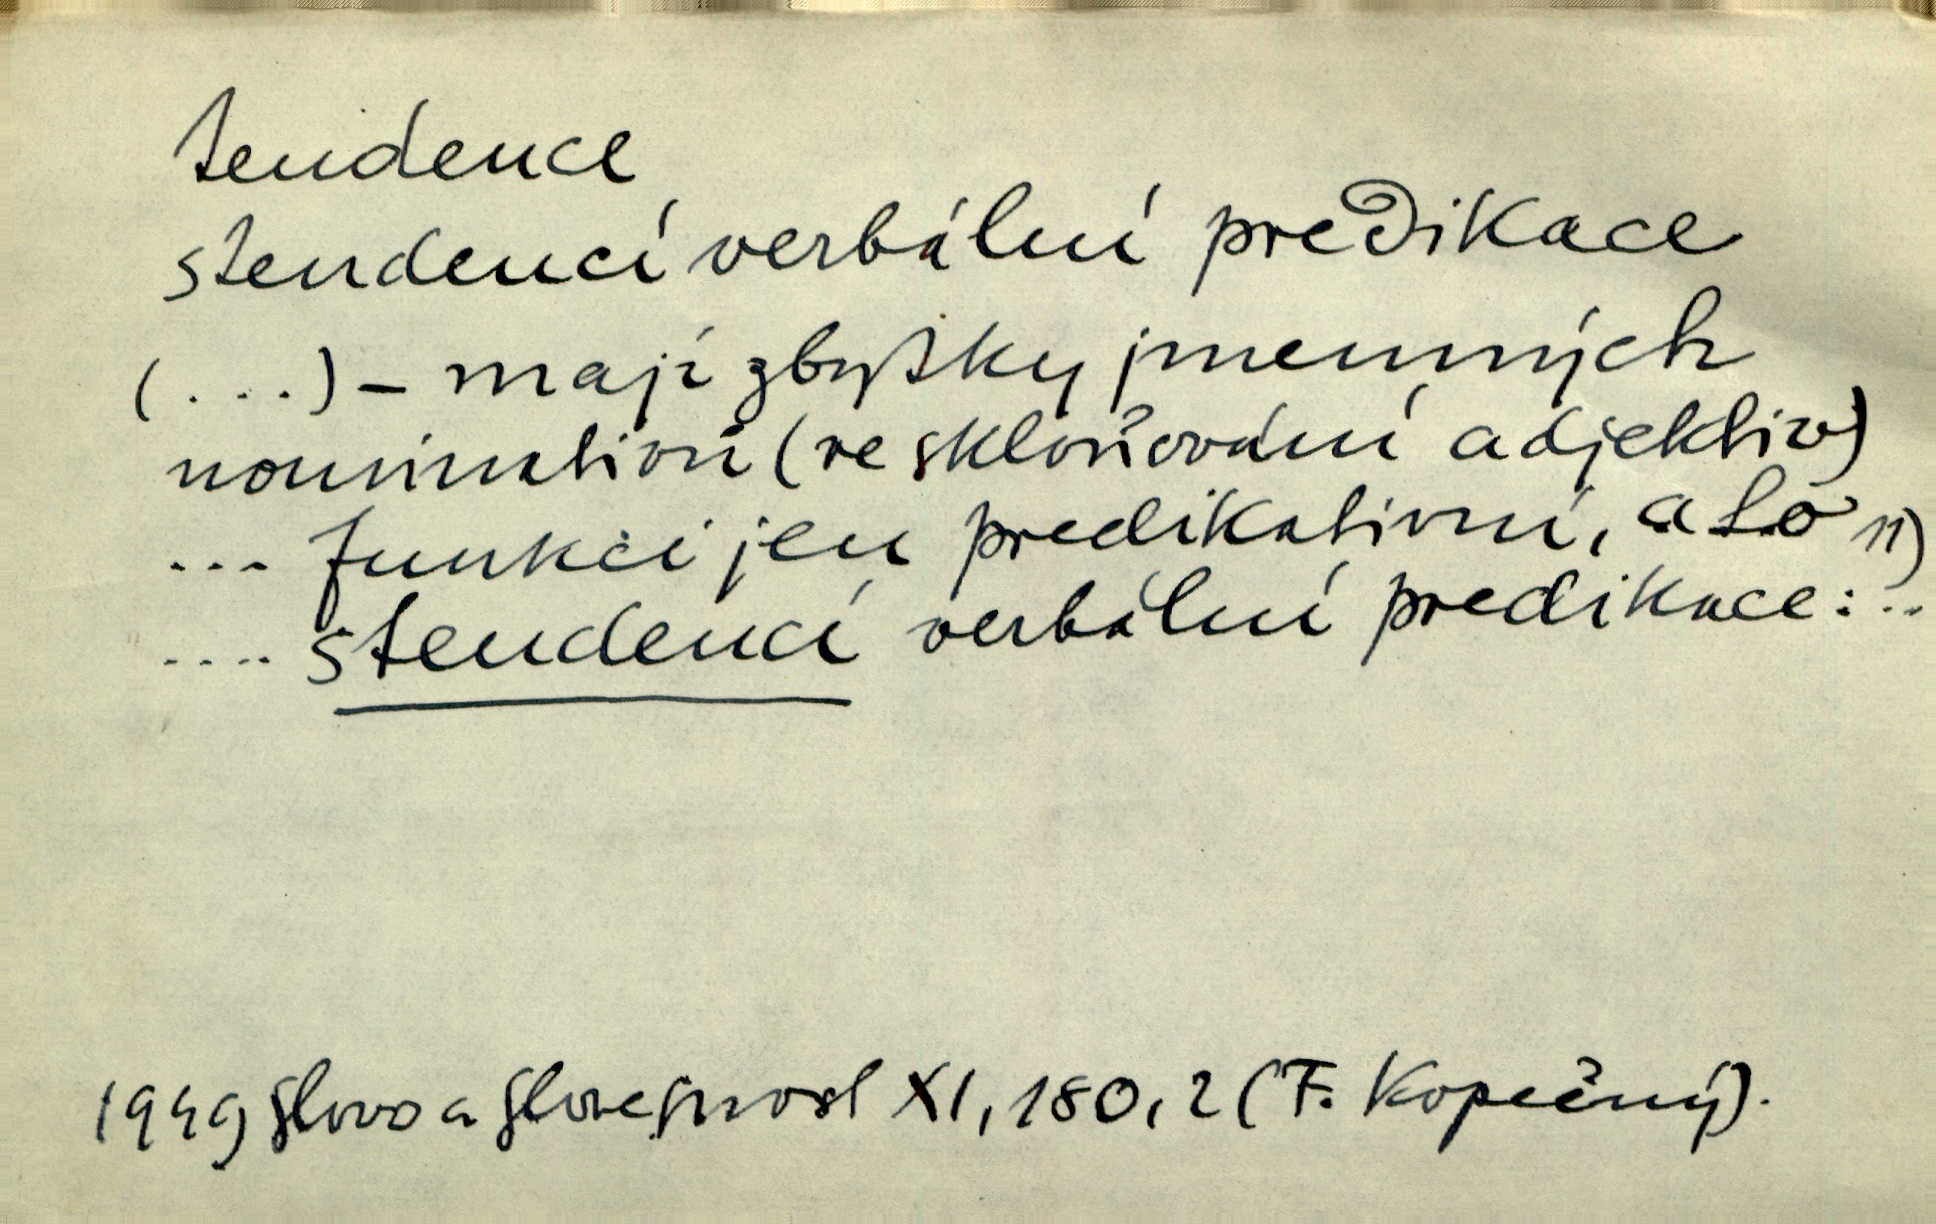 tendence
s tendencí verbální predikace
(...) – mají zbytky jmenných
nominativů (ve skloňování adjektiv)
... funkci jen predikativní, a to 11)
.... s tendencí verbální predikace: ..
1949 Slovo a slovesnost XI, 180, 2 (F. Kopečný).